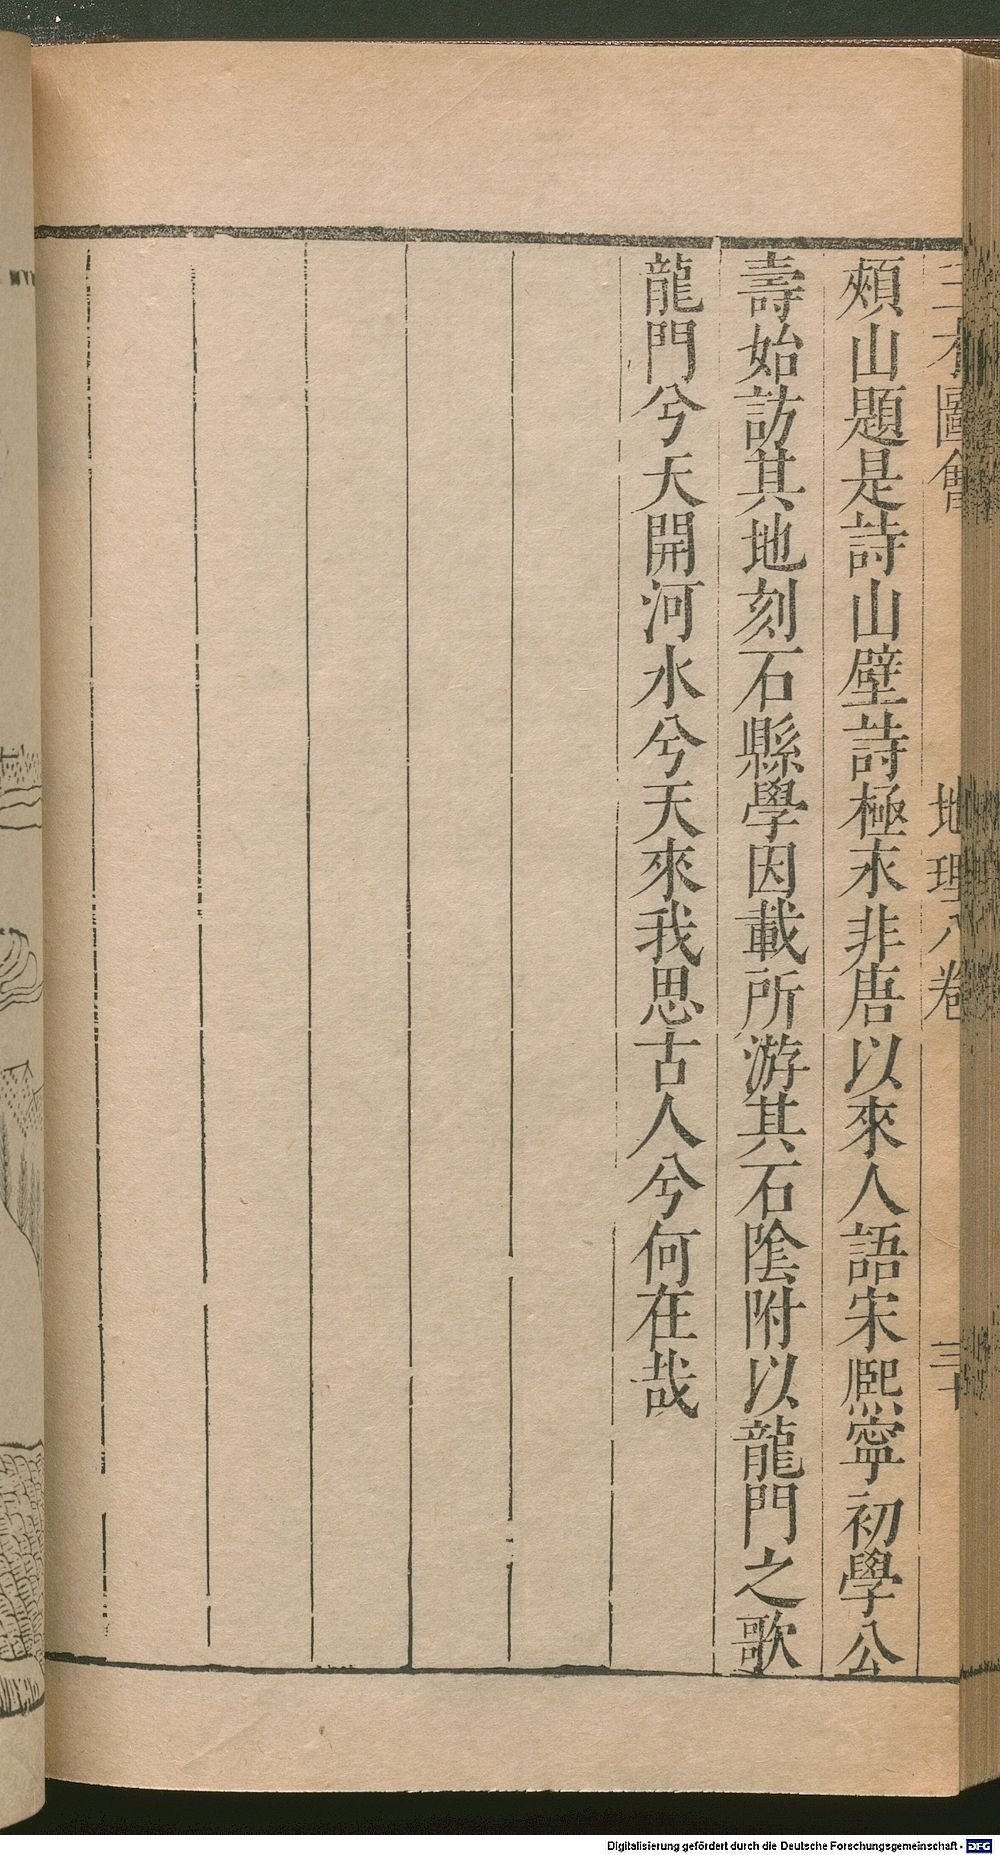 三才圖會 地理八卷 三十
頰山題是詩山壁詩極末非唐以來人語宋熙寧初學公
壽始訪其地刻石縣學因載所游其石陰附以龍門之歌
龍門兮天開河水兮天來我思古人兮何在哉
Digitalisierung gefördert durch die Deutsche Forschungsgemeinschaft - DFG